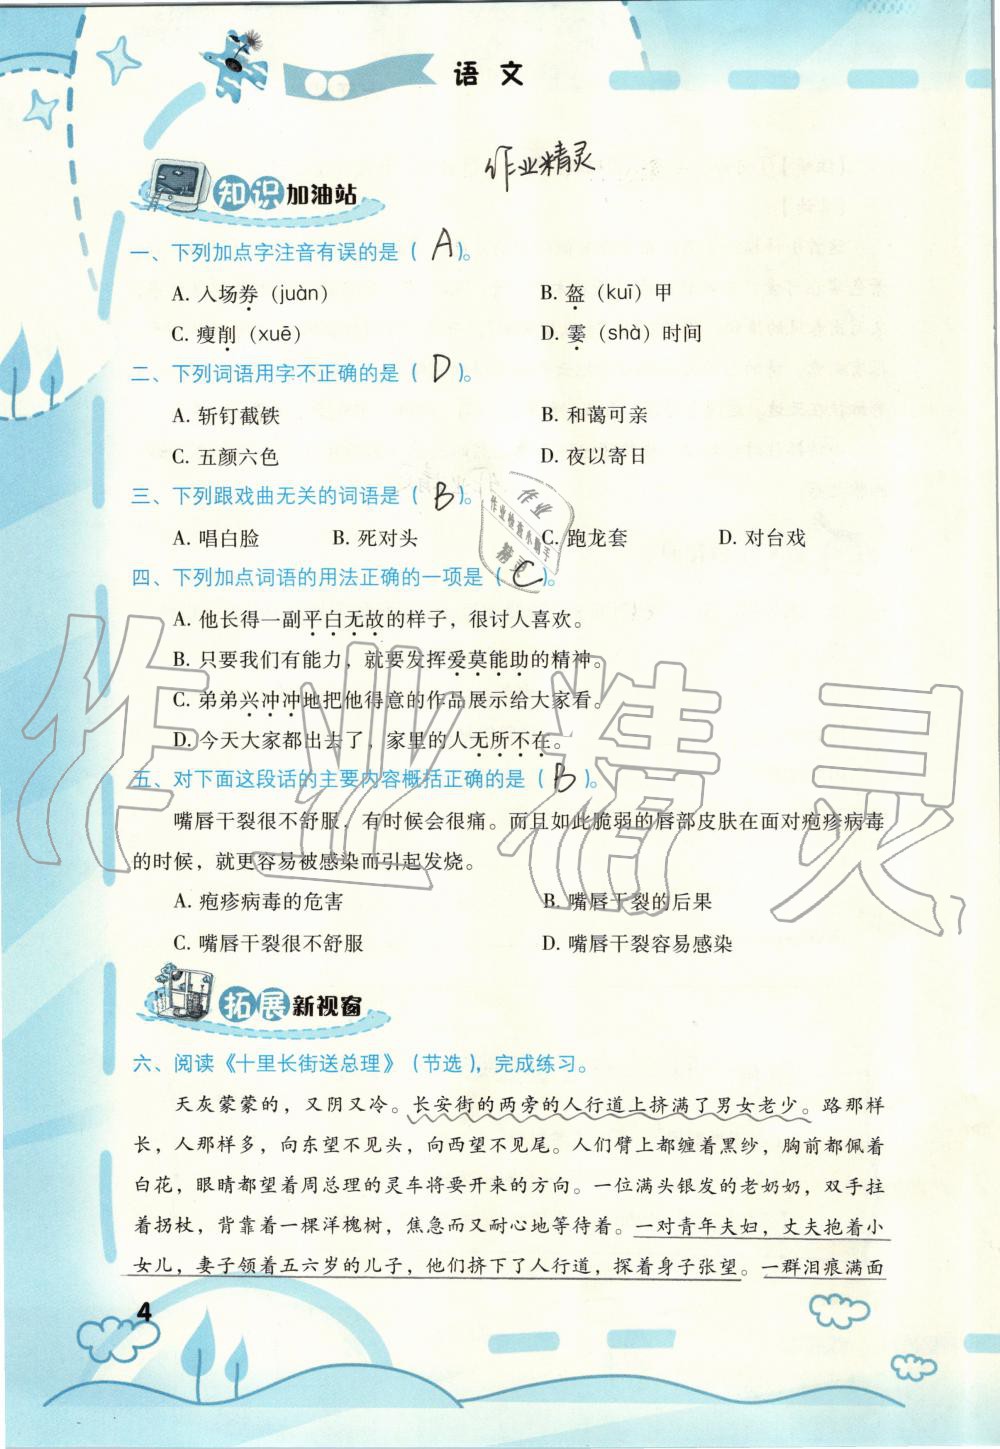 语文
作业精灵
知识加油站
一、下列加点字注音有误的是（ A ）。
A. 入场券（juàn）　B. 盔（kuī）甲
C. 瘦削（xuē）　D. 霎（shà）时间
二、下列词语用字不正确的是（ D ）。
A. 斩钉截铁　B. 和蔼可亲
C. 五颜六色　D. 夜以寄日
三、下列跟戏曲无关的词语是（ B ）。
A. 唱白脸　B. 死对头　C. 跑龙套　D. 对台戏
四、下列加点词语的用法正确的一项是（ C ）。
A. 他长得一副平白无故的样子，很讨人喜欢。
B. 只要我们有能力，就要发挥爱莫能助的精神。
C. 弟弟兴冲冲地把他得意的作品展示给大家看。
D. 今天大家都出去了，家里的人无所不在。
五、对下面这段话的主要内容概括正确的是（ B ）。
嘴唇干裂很不舒服，有时候会很痛。而且如此脆弱的唇部皮肤在面对疱疹病毒
的时候，就更容易被感染而引起发烧。
A. 疱疹病毒的危害　B. 嘴唇干裂的后果
C. 嘴唇干裂很不舒服　D. 嘴唇干裂容易感染
拓展新视窗
六、阅读《十里长街送总理》（节选），完成练习。
天灰蒙蒙的，又阴又冷。长安街的两旁的人行道上挤满了男女老少。路那样
长，人那样多，向东望不见头，向西望不见尾。人们臂上都缠着黑纱，胸前都佩着
白花，眼睛都望着周总理的灵车将要开来的方向。一位满头银发的老奶奶，双手拄
着拐杖，背靠着一棵洋槐树，焦急而又耐心地等待着。一对青年夫妇，丈夫抱着小
女儿，妻子领着五六岁的儿子，他们挤下了人行道，探着身子张望。一群泪痕满面
4
作业精灵
作业
作业检查小助手
精灵